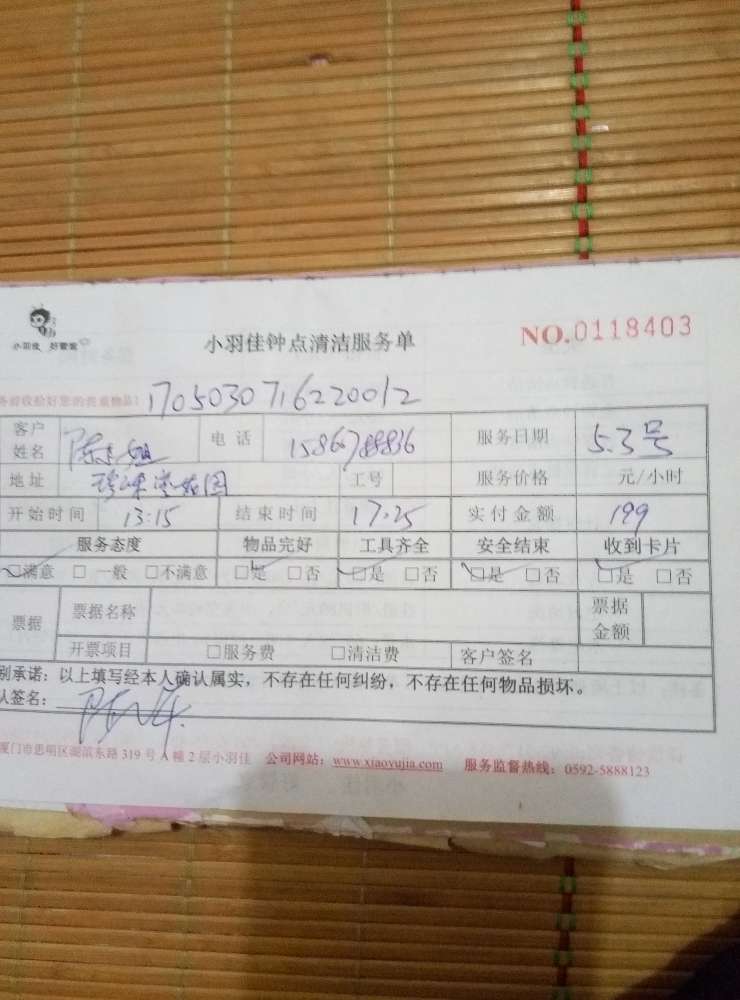 小羽佳 好管家
小羽佳钟点清洁服务单
NO.0118403
务必收拾好您的贵重物品！
1705030716220012
客户姓名 电话 服务日期 5.3号
地址 工号 服务价格 元/小时
开始时间 13:15 结束时间 17:25 实付金额 199
服务态度 物品完好 工具齐全 安全结束 收到卡片
☑满意 □一般 □不满意 ☑是 □否 ☑是 □否 ☑是 □否 ☑是 □否
票据 票据名称 票据金额
开票项目 □服务费 □清洁费 客户签名
别承诺：以上填写经本人确认属实，不存在任何纠纷，不存在任何物品损坏。
认签名：
厦门市思明区湖滨东路 319 号 A 幢 2 层小羽佳 公司网站：www.xiaoyujia.com 服务监督热线：0592-5888123